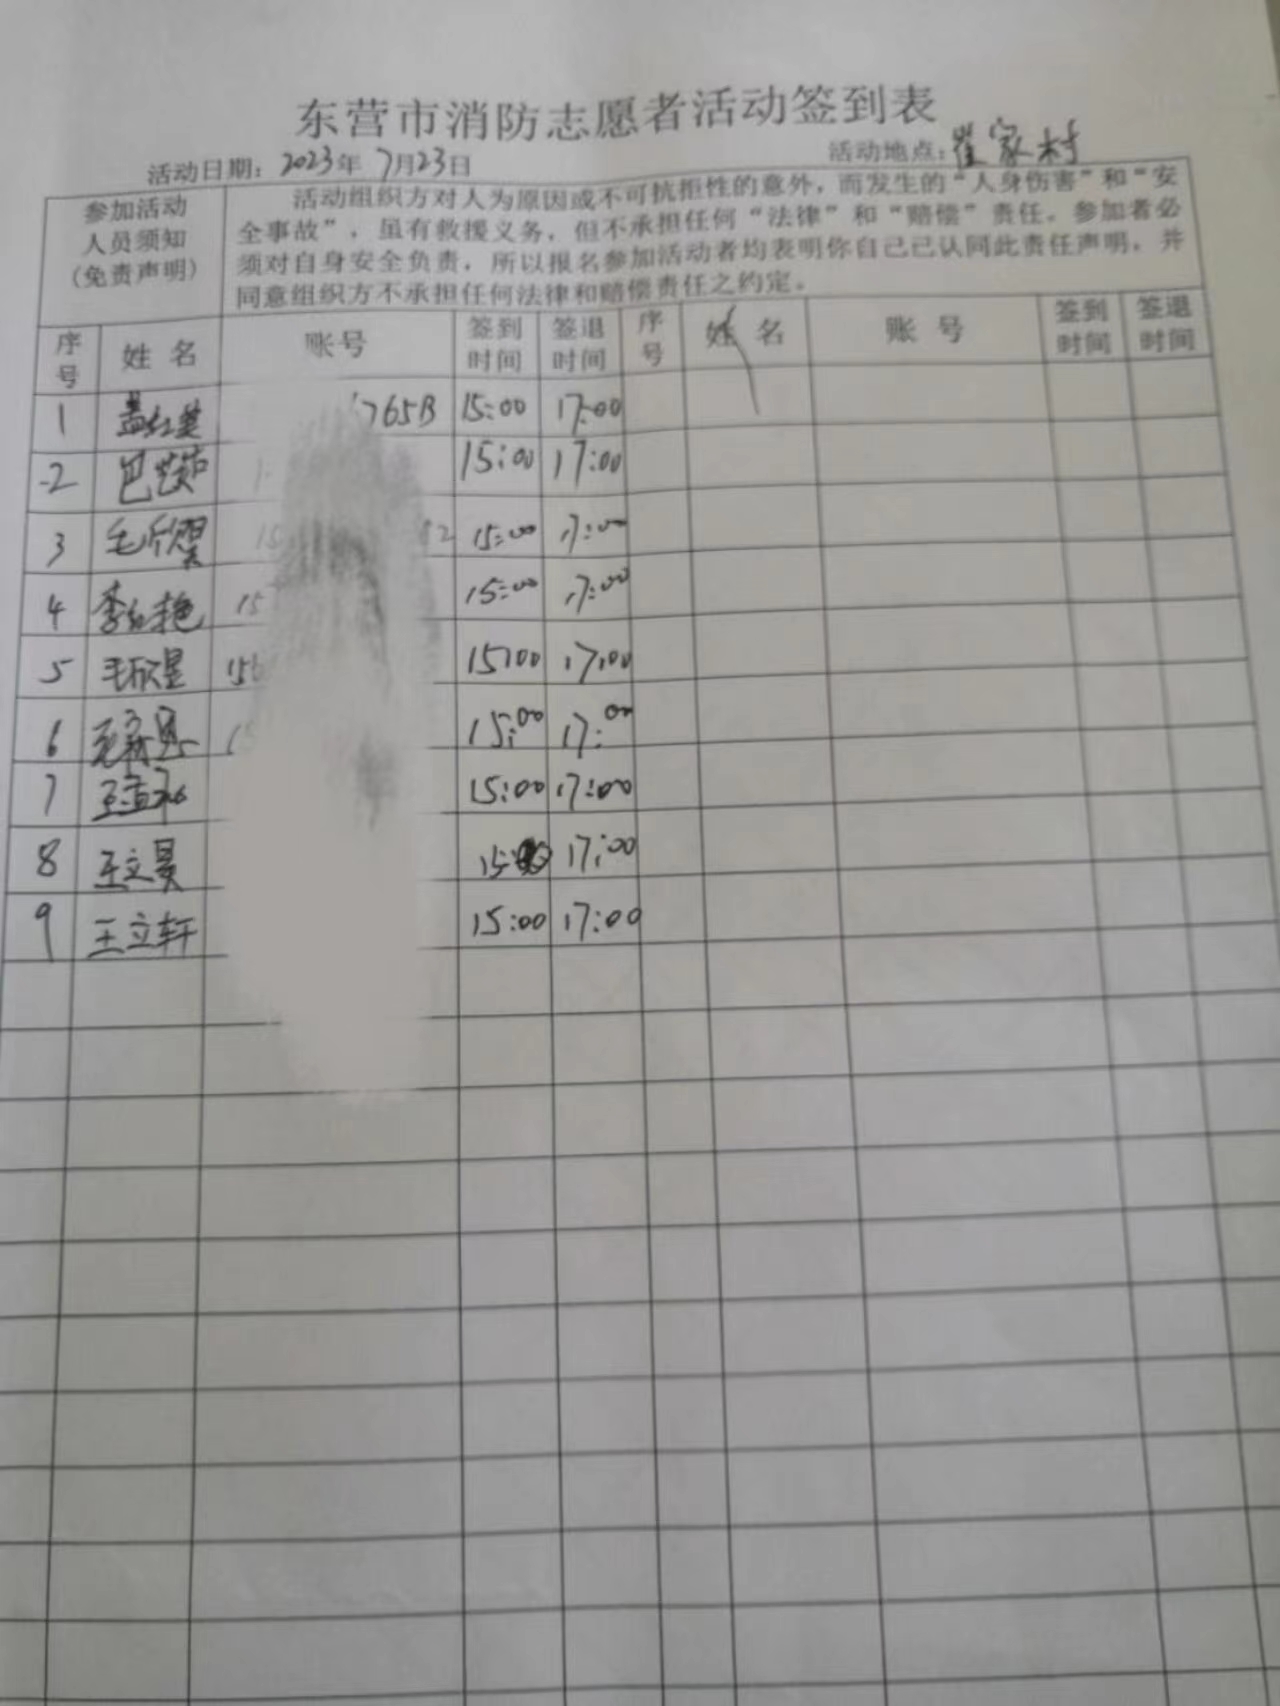 东营市消防志愿者活动签到表
活动日期：2023年 7月23日 活动地点：崔家村
参加活动
人员须知
(免责声明)
活动组织方对人为原因或不可抗拒性的意外，而发生的“人身伤害”和“安
全事故”，虽有救援义务，但不承担任何“法律”和“赔偿”责任。参加者必
须对自身安全负责，所以报名参加活动者均表明你自己已认同此责任声明，并
同意组织方不承担任何法律和赔偿责任之约定。
序号 姓名 账号 签到时间 签退时间 序号 姓名 账号 签到时间 签退时间
1 盖红英 765B 15:00 17:00
2 巴 15:00 17:00
3 毛欣 15 2 15:00 17:00
4 李红艳 15 15:00 17:00
5 毛欣昱 156 15:00 17:00
6 15:00 17:00
7 15:00 17:00
8 王文昊 15: 17:00
9 王立轩 15:00 17:00